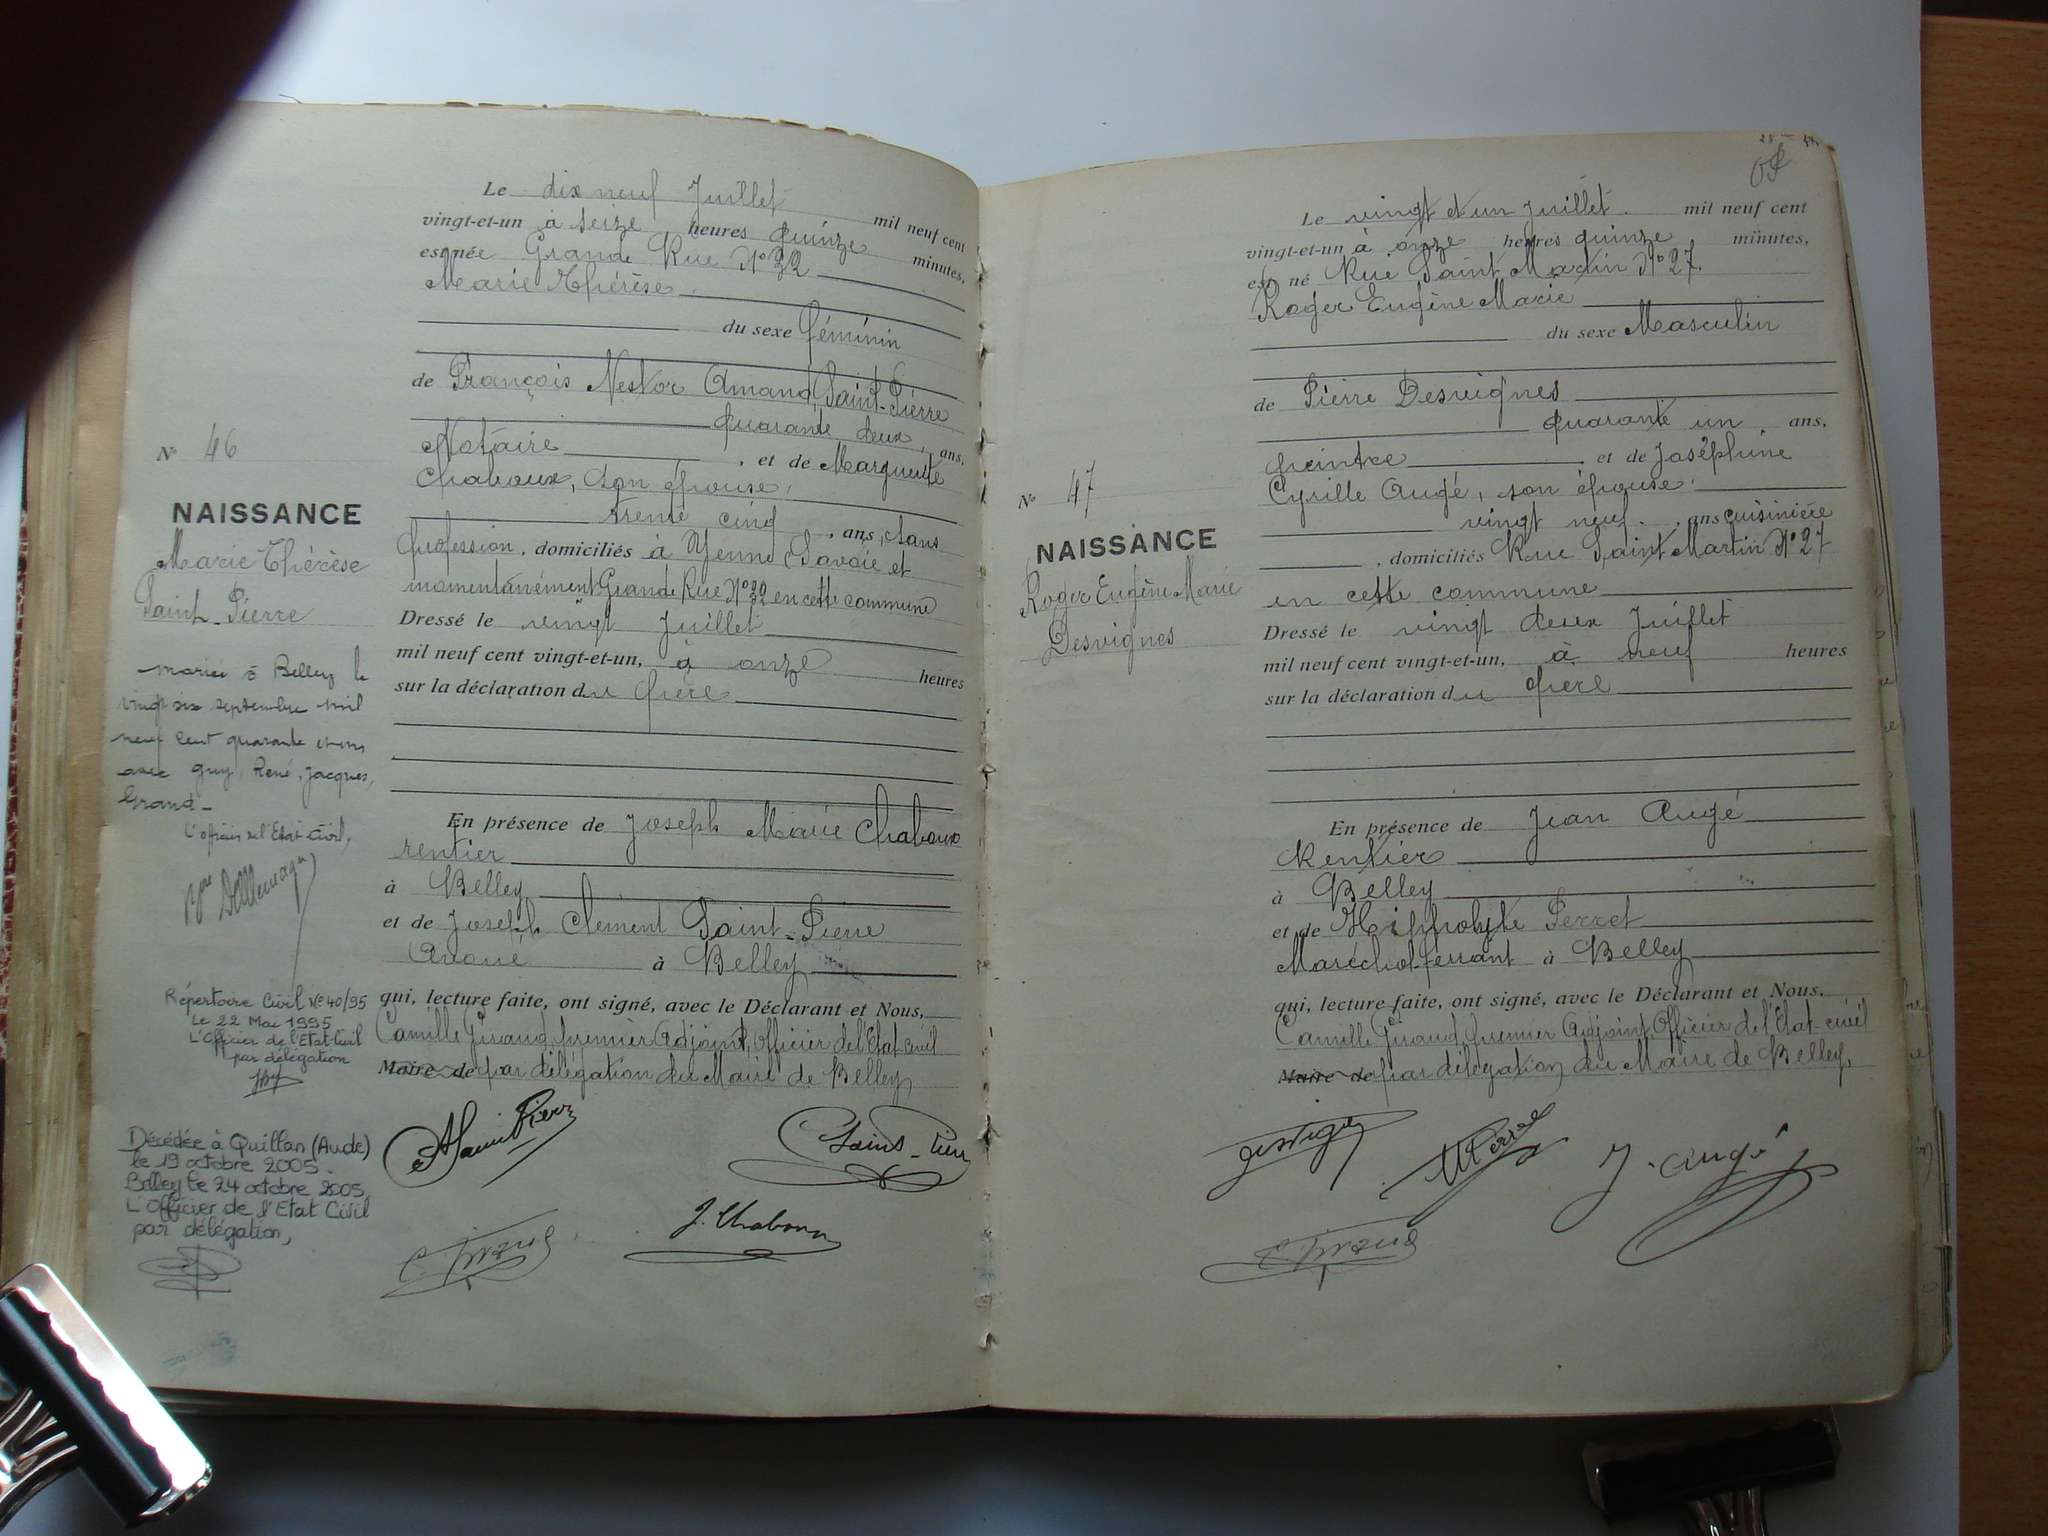 Le dix neuf Juillet mil neuf cent
vingt-et-un à seize heures quinze minutes,
est née Grande Rue N° 32
Marie Thérèse
du sexe féminin
de François Nestor Amand Saint-Pierre
quarante deux ans,
Notaire, et de Marguerite
Chaboux, son épouse,
trente cinq, ans, sans
profession, domiciliés à Yenne (Savoie et
momentanément Grande Rue N° 32 en cette commune
Dressé le vingt Juillet
mil neuf cent vingt-et-un, à onze heures
sur la déclaration du père
En présence de Joseph Marie Chaboux
rentier
à Belley
et de Joseph Clément Saint-Pierre
Avoué à Belley
qui, lecture faite, ont signé, avec le Déclarant et Nous,
Camille Giraud, premier Adjoint, Officier de l'Etat-civil
Maire de par délégation du Maire de Belley
Saint Pierre
Saint-Pierre
C. Giraud
J. Chaboux
N° 46
NAISSANCE
Marie Thérèse
Saint-Pierre
mariée à Belley le
vingt six septembre mil
neuf cent quarante et un
avec Guy, René, Jacques,
Grand-
L'officier de l'Etat Civil,
Répertoire Civil N° 40/95
Le 22 Mai 1995
L'Officier de l'Etat-Civil
par délégation
Décédée à Quillan (Aude)
le 19 octobre 2005.
Belley le 24 octobre 2005
L'Officier de l'Etat Civil
par délégation,
Le vingt et un Juillet mil neuf cent
vingt-et-un à onze heures quinze minutes,
est né Rue Saint Martin N° 27.
Roger Eugène Marie
du sexe Masculin
de Pierre Desvignes
quarante un ans,
peintre et de Joséphine
Cyrille Augé, son épouse,
vingt neuf, ans cuisinière
, domiciliés Rue Saint Martin N° 27
en cette commune
Dressé le vingt deux Juillet
mil neuf cent vingt-et-un, à neuf heures
sur la déclaration du père
En présence de Jean Augé
Rentier
à Belley
et de Hippolyte Perret
Maréchal-ferrant à Belley
qui, lecture faite, ont signé, avec le Déclarant et Nous,
Camille Giraud, premier Adjoint, Officier de l'Etat-civil
Maire de par délégation du Maire de Belley,
Desvignes
J. Augé
C. Giraud
N° 47
NAISSANCE
Roger Eugène Marie
Desvignes